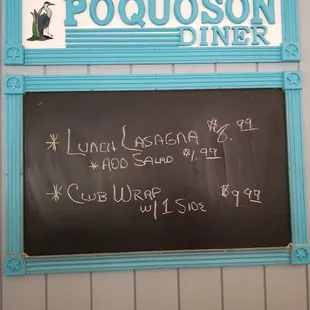 POQUOSON
DINER
* LUNCH LASAGNA $8.99
* ADD SALAD $1.99
* CLUB WRAP $9.99
W/ 1 SIDE